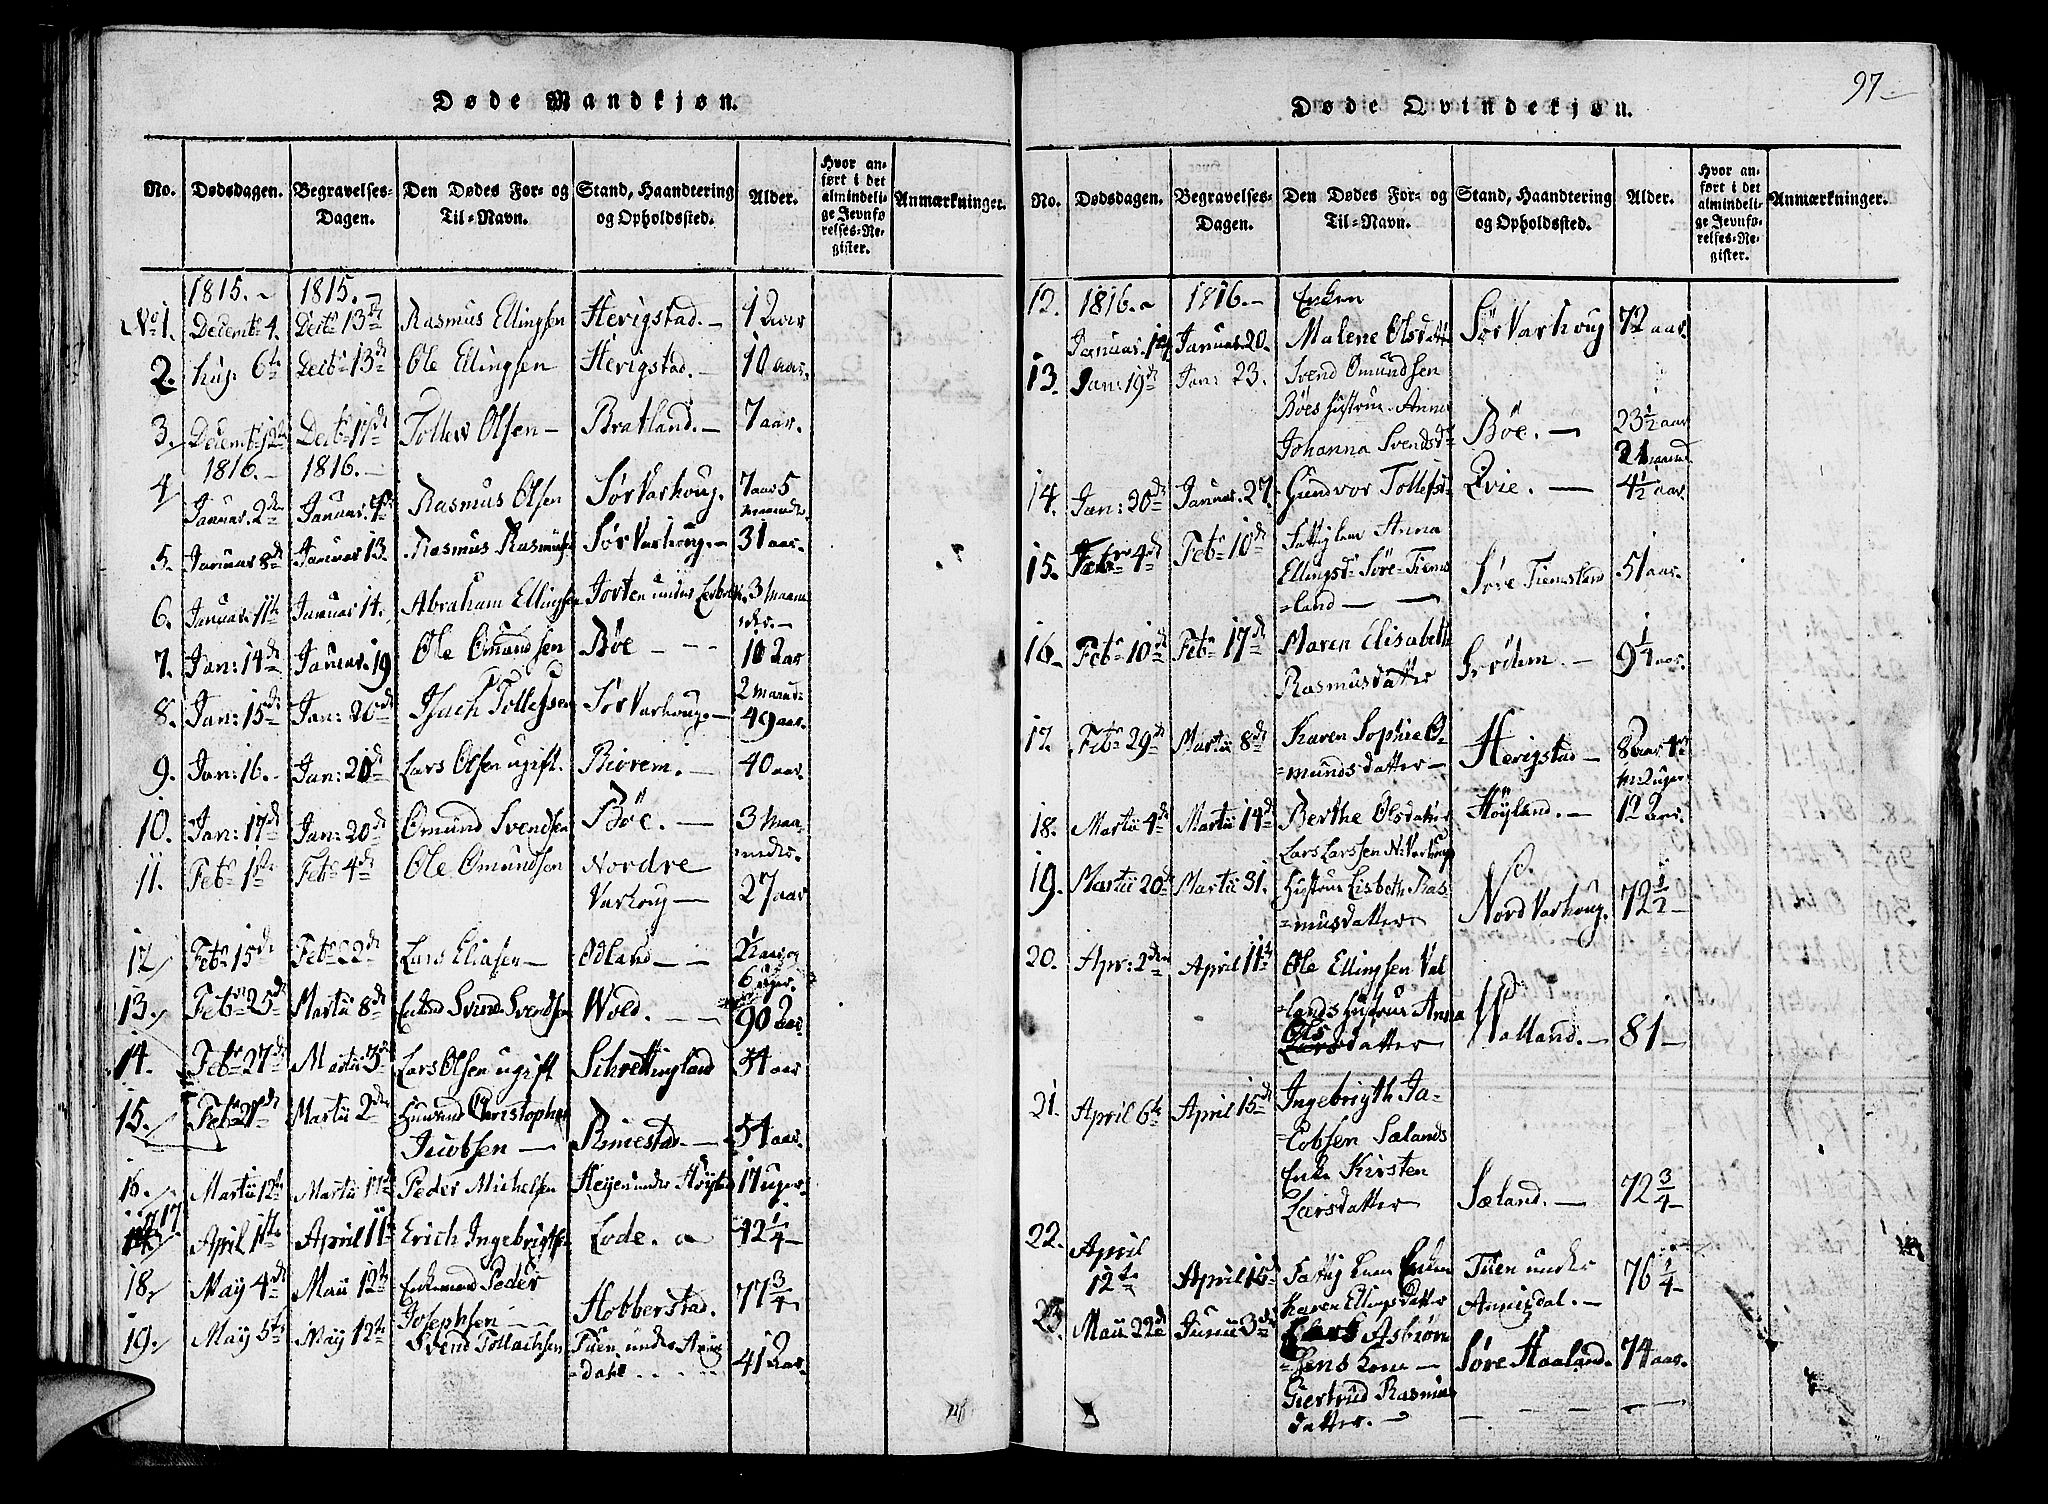 Døde Mandkjøn.
No.
Dødsdagen.
Begravelses-
Dagen.
Den Dødes For- og
Til-Navn.
Stand, Haandtering
og Opholdssted.
Alder.
Hvor an-
ført i det
almindeli-
ge Jevnfø
relses-Re-
gister.
Anmærkninger.
1815. 1815.
No 1. Decembr 4. Decbr 13de Rasmus Ellingsen Herigstad. 1 Aar
2. 6te Decbr 13de Ole Ellingsen Herigstad. 10 aar.
3. Decembr 12te Decbr 17de Tollew Olsen Bratland. 7 aar.
1816. 1816.
4 Januar. 2den Januar. Rasmus Olsen Sør Varhoug. 7 aar 5
maaneder.
5. Januar 8de Januar 13. Rasmus Rasmuss Sør Varhoug. 31 aar.
6. Januar. 11te Januar 14. Abraham Ellingsen Jorten under 3 maane
der.
7. Jan: 14de Januar. 19 Ole Omundsen Bøe 10 Aar
2 maand:
8. Jan: 15de Jan: 20de Isach Tollefsen Sør Varhoug. 49 aar.
9. Jan: 16. Jan: 20de Lars Olsen ugift. Biorem. 40 aar.
10. Jan: 17de Jan: 20de Omund Svendsen Bøe. 3 maa-
neder.
11. Febr 1ste Febr 4de Ole Omundsen Nordre
Varhoug 27 aar
12 Febr 15de Febr 22de Lars Eliasen Odland 2 Aar og
6 uger.
13. Febr 25de Martii 8de Svend Svendsen Wold. 90 Aar
14. Febr 27de Martii Lars Olsen ugift Schrettingland 34 aar
15. Febr 27de Martii 2den Christopher
Jacobsen Rimestad. 54 aar.
16. Martii 12te Martii 17de Peder Michelsen under Høyland 17 uger
17 April 1ste April 11te Erich Ingebrigts Lode. 42 1/4
18. May 4de Maii 12te Enkemand Peder
Josephsen Hobberstad. 77 3/4
19. May 5te May 12te Svend Tollachsen Tuen under
dahl 41 Aar.
97
Døde Qvindekjøn.
No.
Dødsdagen.
Begravelses-
Dagen.
Den Dødes For- og
Til-Navn.
Stand, Haandtering
og Opholdssted.
Alder.
Hvor an-
ført i det
almindeli-
ge Jevnfø-
relses-Re-
gister.
Anmærkninger.
12. 1816. 1816. Enken
Januar. Januar. 20. Malene Olsdatter Sør Varhoug 72 aar.
13. Jan: 19de Jan: 23. Svend Omundsen
Bøes hustrue Anne
Johanna Svendsd Bøe. 23 1/2 aar
14. Jan: 20de Januar. 27. Gundvor Tollefsd Qvie. 4 1/2 aar.
15. Febr 4de Febr 10de Fattiglem Anna
Ellingsd Søre Tiems
land Søre Tiemsland 51 aar.
16 Febr 10de Febr 17de Maren Elisabeth
Rasmusdatter Grødem. 9 1/4 aar.
17. Febr 29de Martii 8de Karen Sophie O-
mundsdatter Herigstad
18. Martii 4de Martii 14de Berthe Olsdatter Høyland. 12 Aar.
19. Martii 20de Martii 31. Lars Larssen N. Varhoug
hustrue Lisbeth Ras-
musdatter Nord Varhoug. 72 1/2
20. Apr: 2den April 11te Ole Ellingsen Val
lands hustrue Anna
Olsdatter Walland. 81
21. April 6te April 15de Ingebrigth Ja-
cobsen Sælands
Enke Kirsten
Larsdatter Sæland. 72 3/4
22. April
12te April 15de Enken
Karen Ellingsdatter Tuen under
76 1/4
23. Maii 22de Junii 3de Asbiørn
sens Kone
Giertrud Rasmus
datter. Søre Haaland. 74 aar.